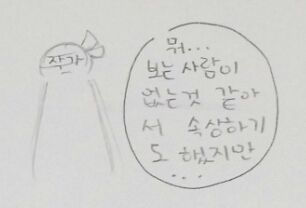 작가
뭐...
보는 사람이
없는것 같아
서 속상하기
도 했지만
...